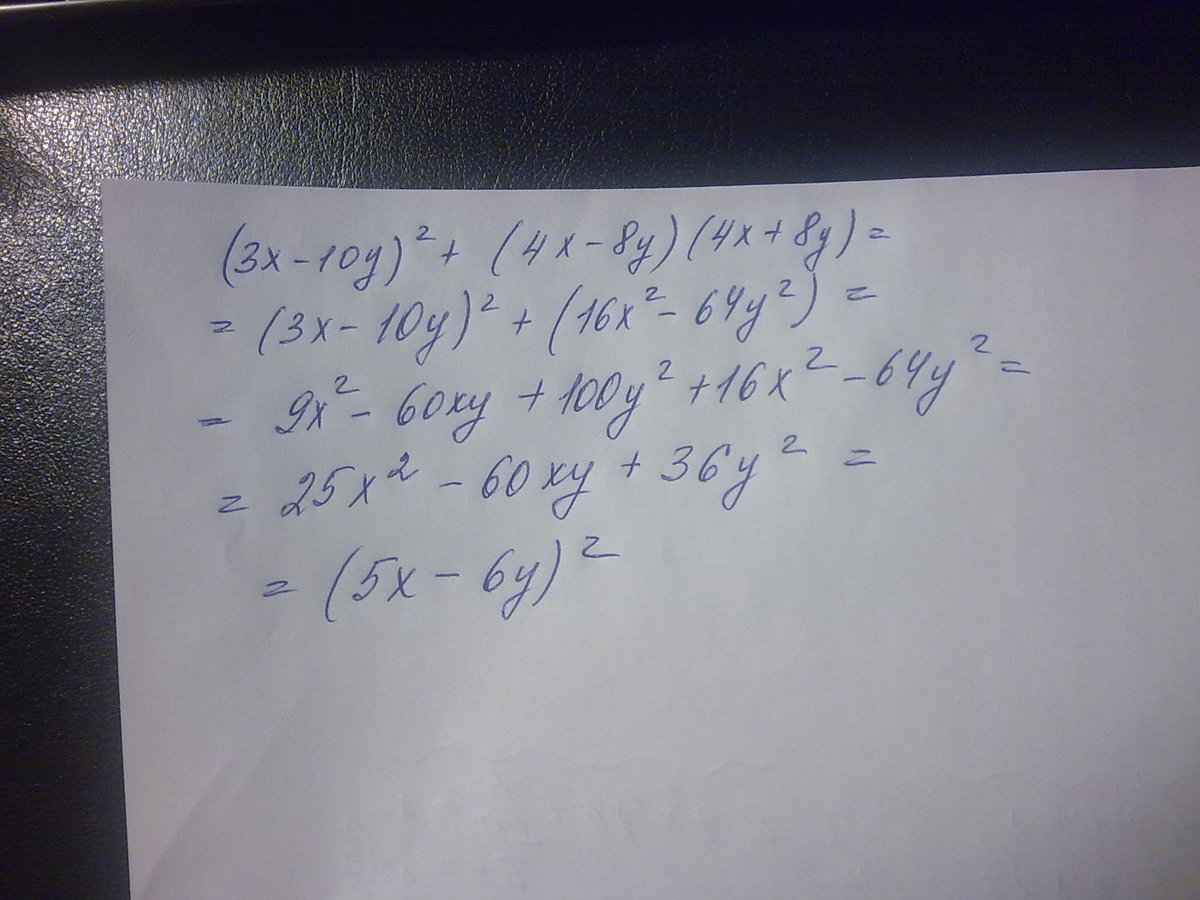 (3x-10y)² + (4x-8y)(4x+8y)=
= (3x-10y)² + (16x²-64y²) =
= 9x²-60xy+100y²+16x²-64y²=
= 25x²-60xy+36y² =
= (5x-6y)²